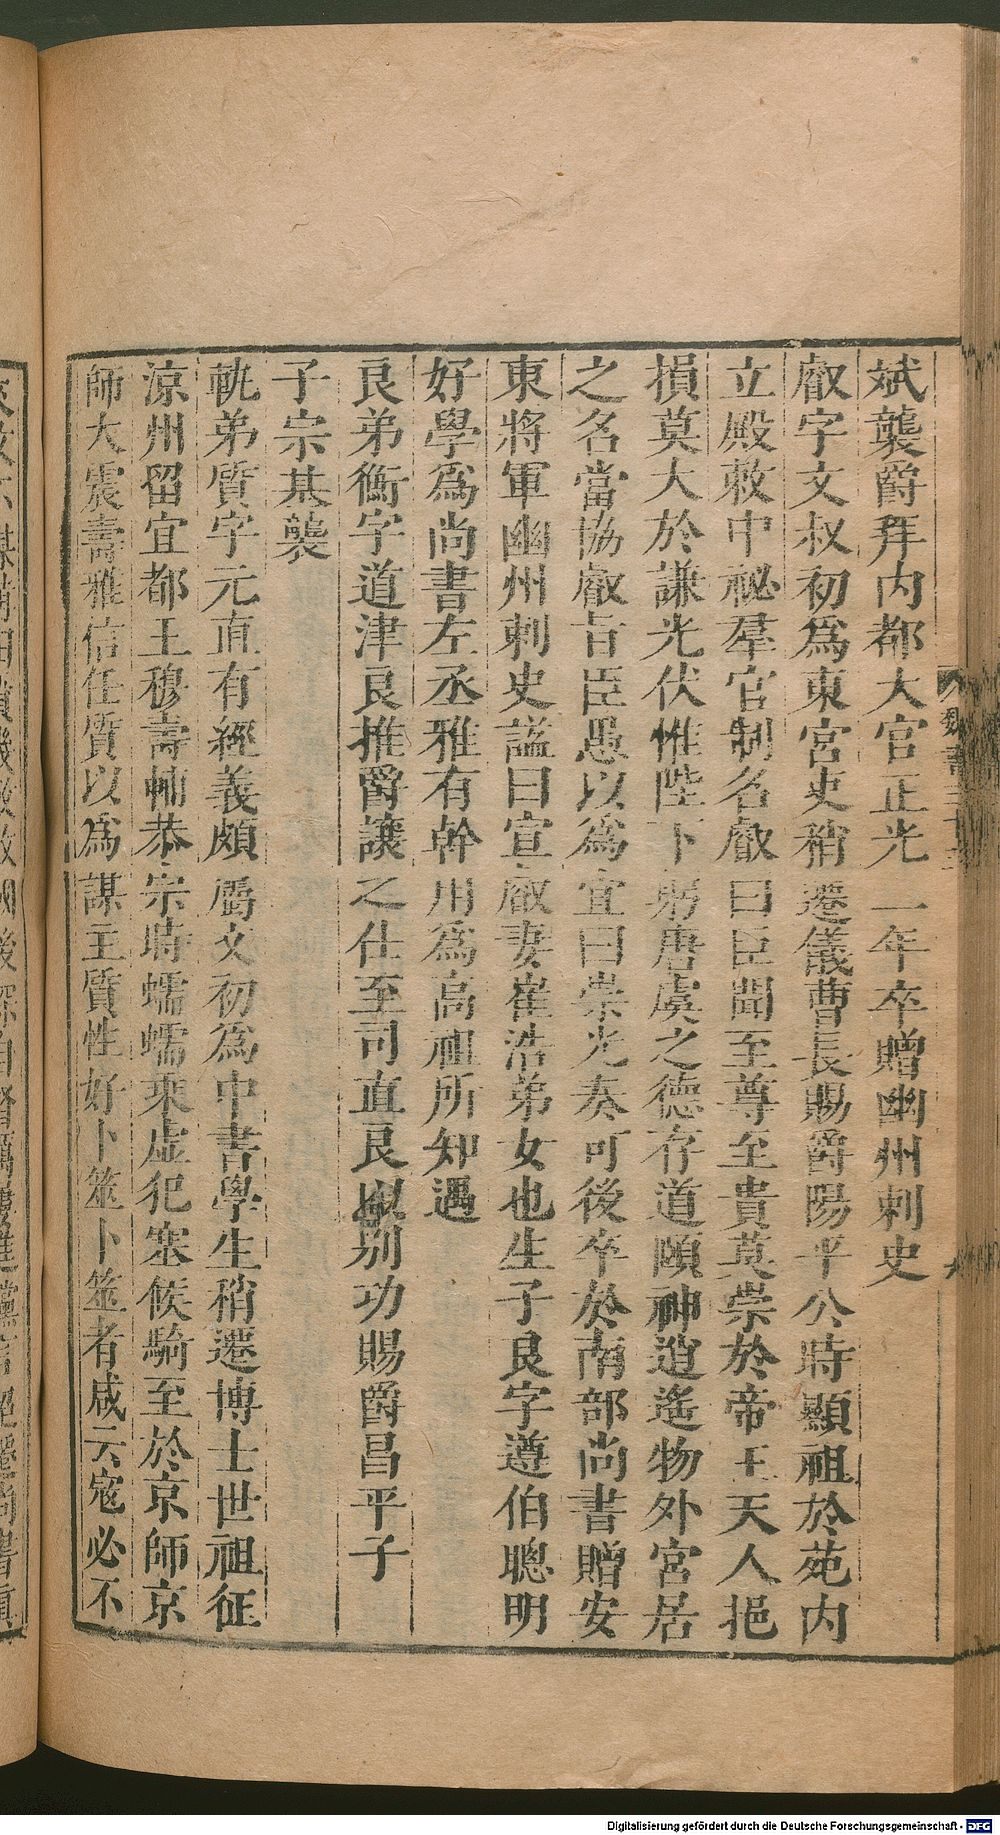 斌襲爵拜内都大官正光一年卒贈幽州刺史
叡字文叔初爲東宮吏稍遷儀曹長賜爵陽平公時顯祖於苑内
立殿敕中祕羣官制名叡曰臣聞至尊至貴莫崇於帝王天人挹
損莫大於謙光伏惟陛下躬唐虞之德存道頤神逍遙物外宮居
之名當協叡旨臣愚以爲宜曰崇光奏可後卒於南部尚書贈安
東將軍幽州刺史謚曰宣叡妻崔浩弟女也生子良字遵伯聰明
好學爲尚書左丞雅有幹用爲高祖所知遇
良弟衡字道津良推爵讓之仕至司直良以别功賜爵昌平子
子宗基襲
軌弟質字元直有經義頗屬文初爲中書學生稍遷博士世祖征
涼州留宜都王穆壽輔恭宗時蠕蠕乘虛犯塞候騎至於京師京
師大震壽雅信任質以爲謀主質性好卜筮卜筮者咸云寇必不
Digitalisierung gefördert durch die Deutsche Forschungsgemeinschaft - DFG